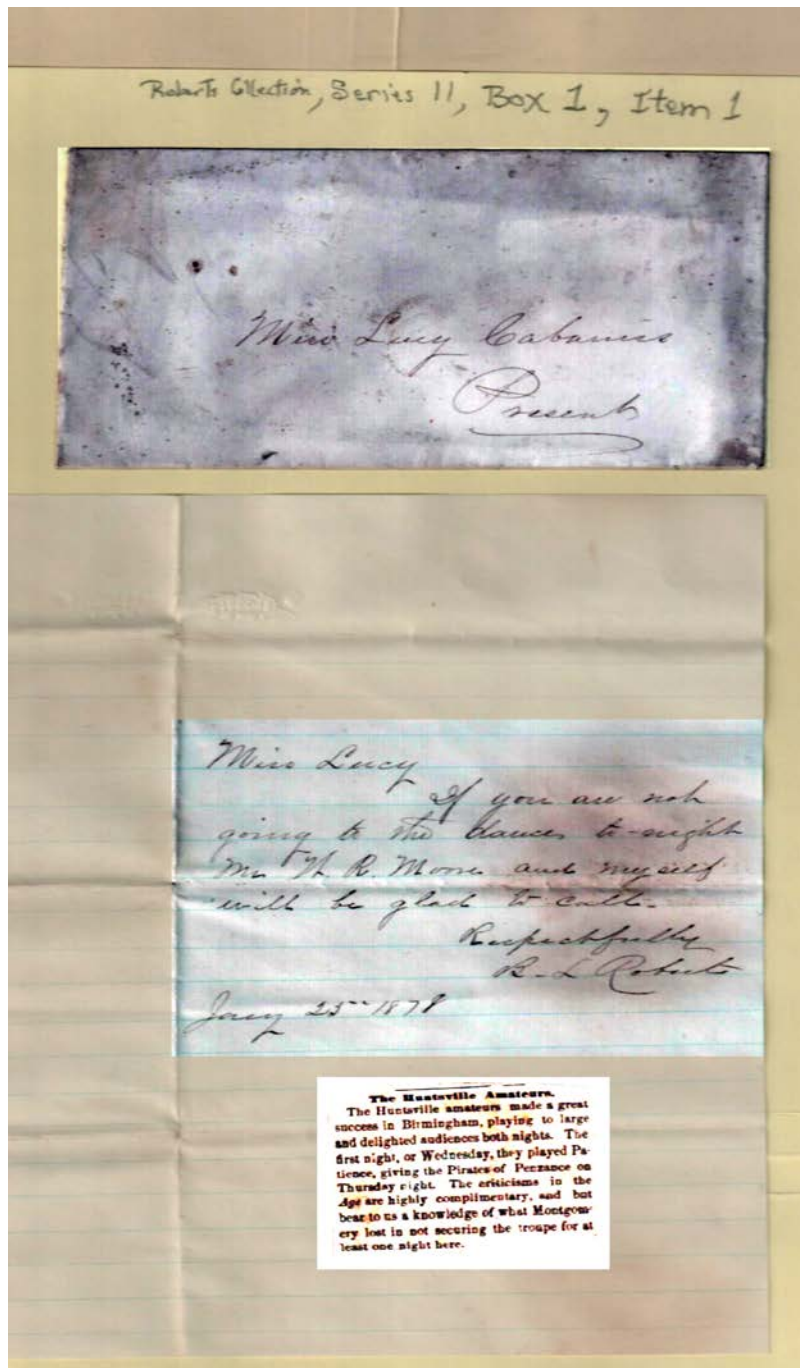 Roberts Collection, Series II, Box 1, Item 1
Miss Lucy Cabaniss
Present
Miss Lucy
If you are not
going to the dances to-night
Mr W. R. Moore and myself
will be glad to call.
Respectfully
B. L. Roberts
Jany 23rd 1878
The Huntsville Amateurs.
The Huntsville amateurs made a great
success in Birmingham, playing to large
and delighted audiences both nights. The
first night, or Wednesday, they played Pa-
tience, giving the Pirates of Penzance on
Thursday night. The criticisms in the
Age are highly complimentary, and but
bear to us a knowledge of what Montgom-
ery lost in not securing the troupe for at
least one night here.